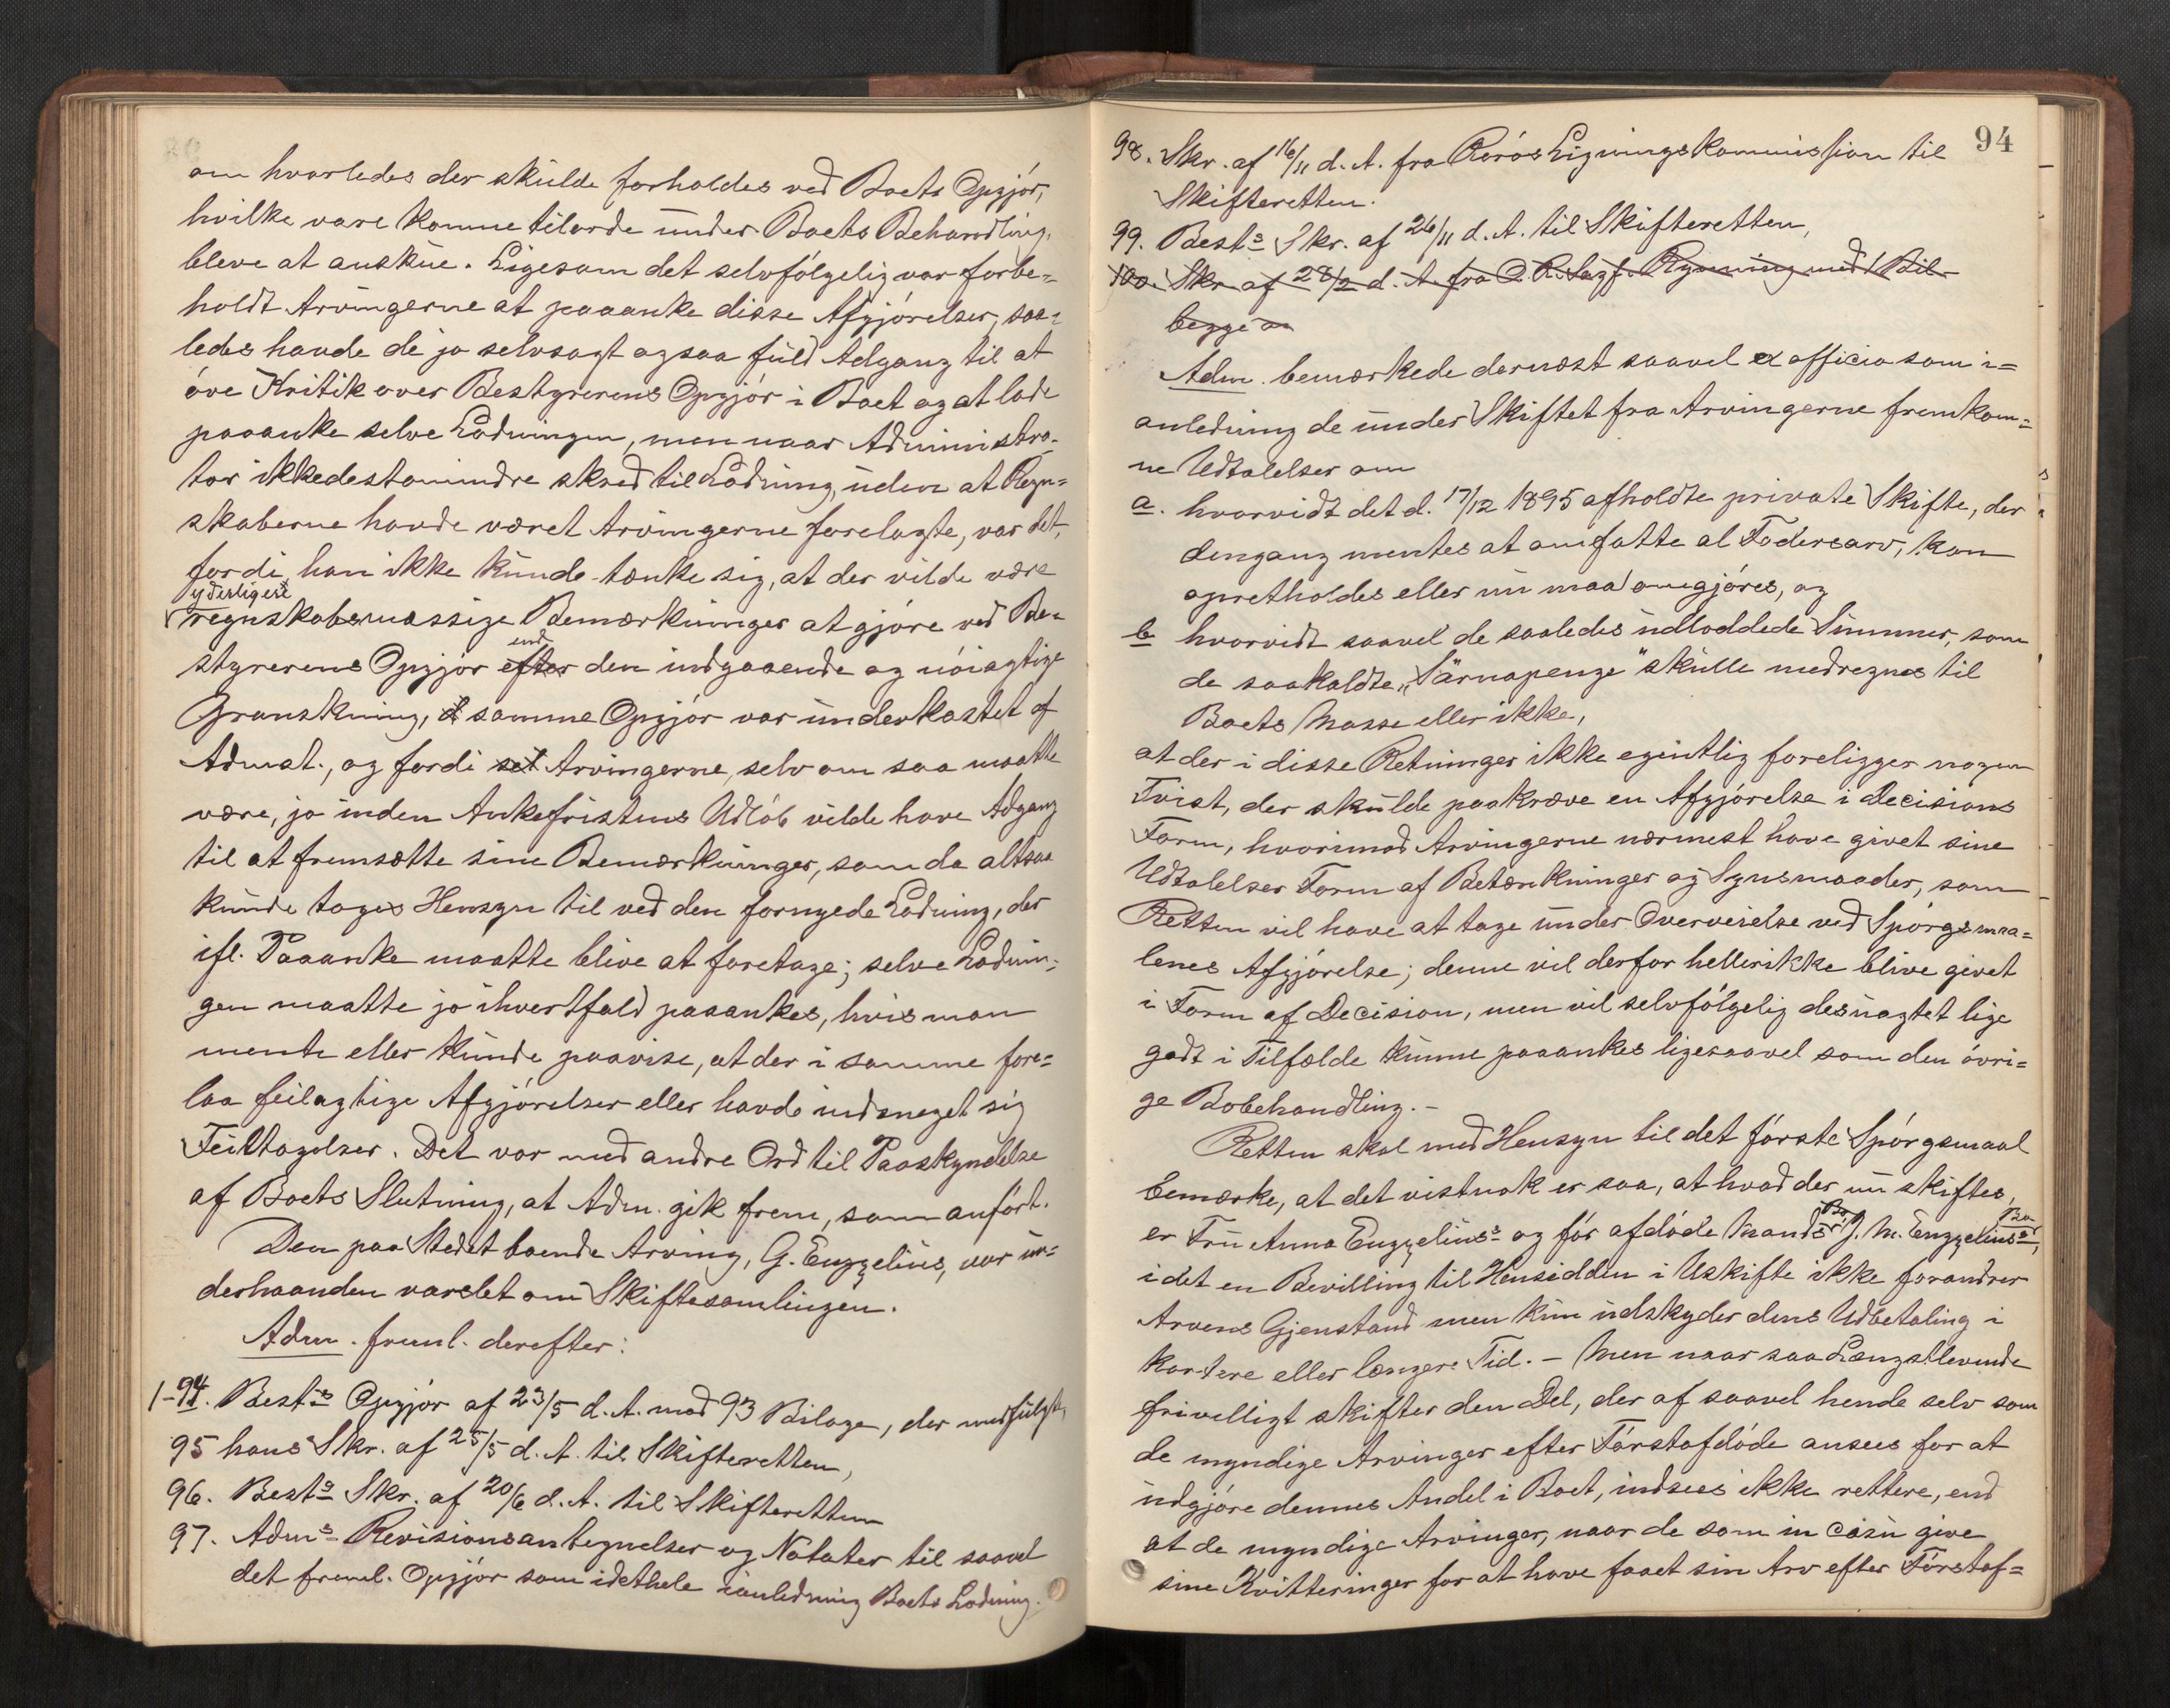 om hvorledes der skulde forholdes ved Boets Opgjör,
hvilke vare komne tilorde under Boets Behandling,
bleve at anskue. Ligesom det selvfölgelig var forbe-
holdt Arvingerne at paaanke disse Afgjörelser, saa-
ledes havde de jo selvsagt ogsaa fuld Adgang til at
öve Kritik over Bestyrerens Opgjör i Boet og at lade
paaanke selve Lodningen, men naar Administra-
tor ikkedestomindre skred til Lodning, uden at Regn-
skaberne havde været Arvingerne forelagte, var det,
fordi han ikke kunde tænke sig, at der vilde være
yderligere
regnskabsmæssige Bemærkninger at gjöre ved Be-
styrerens Opgjör efter end den indgaaende og nöiagtige
Granskning, samme Opgjör var underkastet af
Admst., og fordi sel Arvingerne, selv om saa maatte
være, jo inden Ankefristens Udlöb vilde have Adgang
til at fremsætte sine Bemærkninger, som da altsaa
kunde tages Hensyn til ved den fornyede Lodning, der
ifl. Paaanke maatte blive at foretage; selve Lodnin-
gen maatte jo ihvertfald paaankes, hvis man
mente eller kunde paavise, at der i samme fore-
laa feilagtige Afgjörelser eller havde indsneget sig
Feiltagelser. Det var med andre Ord til Paaskyndelse
af Boets Slutning, at Adm. gik frem, som anfört.
Den paa Stedet boende Arving, G. Engzelius, var un-
derhaanden varslet om Skiftesamlingen.
Adm. freml. derefter:
1-94. Best.s Opgjör af 23/5 d. A. med 93 Bilage, der medfulgte,
95 hans Skr. af 25/5 d. A. til Skifteretten,
96. Best.s Skr. af 20/6 d. A. til Skifteretten
97. Adm.s Revisionsantegnelser og Notater til saavel
det freml. Opgjör som idethele ianledning Boets Lodning.
94
98. Skr. af 16/11 d. A. fra Röros Ligningskommission til
Skifteretten.
99. Best.s Skr. af 26/11 d. A. til Skifteretten,
100. Skr af 28/2 d. A. fra O. R. Sagf. Rynning med 1 Bil-
begge
Adm. bemærkede dernæst saavel ex officio som i-
anledning de under Skiftet fra Arvingerne fremkom-
ne Udtalelser om
a. hvorvidt det d. 17/12 1895 afholdte private Skifte, der
dengang mentes at omfatte al Födersarv, kan
opretholdes eller nu maa omgjöres, og
b hvorvidt saavel de saaledes udloddede Summer, som
de saakaldte „Särnapenge" skulle medregnes til
Boets Masse eller ikke,
at der i disse Retninger ikke egintlig foreligger nogen
Tvist, der skulde paakræve en Afgjörelse i Decisions
Form, hvorimod Arvingerne nærmest have givet sine
Udtalelser Form af Betænkninger og Synsmaader, som
Retten vil have at tage under Overveielse ved Spörgsmaa-
lenes Afgjörelse; denne vil derfor hellerikke blive givet
i Form af Decision, men vil selvfölgelig desuagtet lige
godt i Tilfælde kunne paaankes ligesaavel som den övri-
ge Bobehandling.-
Retten skal med Hensyn til det förste Spörgsmaal
bemærke, at det vistnok er saa, at hvad der nu skiftes,
er Fru Anna Engzelius's og för afdöde Mands Bo J. M. Engzelius's Bo,
idet en Bevilling til Hensidden i Uskifte ikke forandrer
Arvens Gjenstand men kun udskyder dens Udbetaling i
kortere eller længere Tid. - Men naar saa Længstlevende
frivilligt skifter den Del, der af saavel hende selv som
de myndige Arvinger efter Förstafdöde ansees for at
udgjöre dennes Andel i Boet, indsees ikke rettere, end
at de myndige Arvinger, naar de som in casu give
sine Kvitteringer for at have faaet sin Arv efter Förstaf-